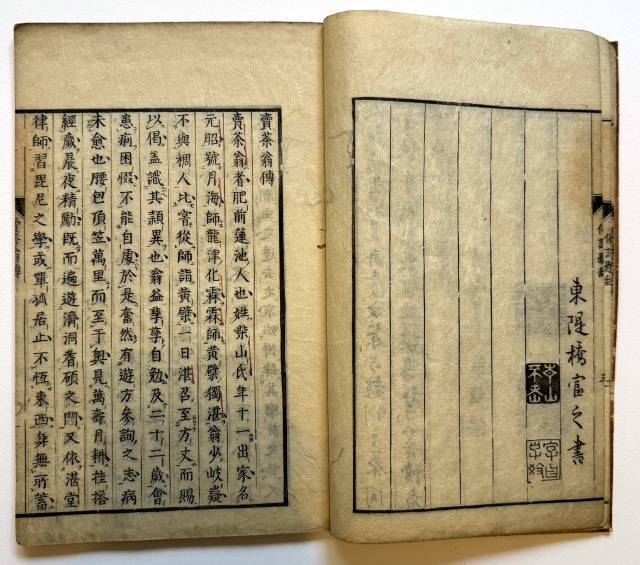 東隄橋富之書
賣茶翁傳
賣茶翁者肥前蓮池人也姓柴山氏年十一出家名
元昭號月海師龍津化霖霖師黃檗獨湛翁少岐嶷
不與稠人比甞從師詣黃檗一日湛召至方丈而賜
以偈盖識其頴異也翁益孳孳自勉及二十二歲會
患痢困惙不能自處於是奮然有遊方參詢之志病
未愈也腰包頂笠萬里而至于奧見萬壽月耕挂搭
經歲晨夜精勵既而遍遊濟洞耆碩之門又依湛堂
律師習毘尼之學或單孤居止不恆東西身無所蓄